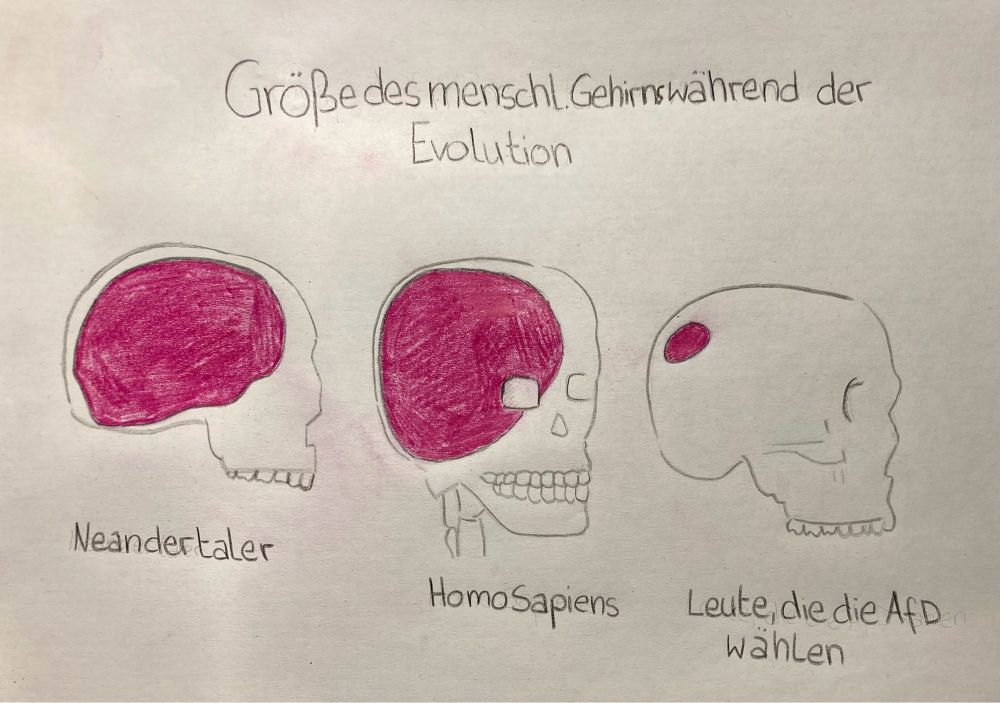 Größe des menschl. Gehirns während der
Evolution
Neandertaler
Homo Sapiens
Leute, die die AfD
wählen